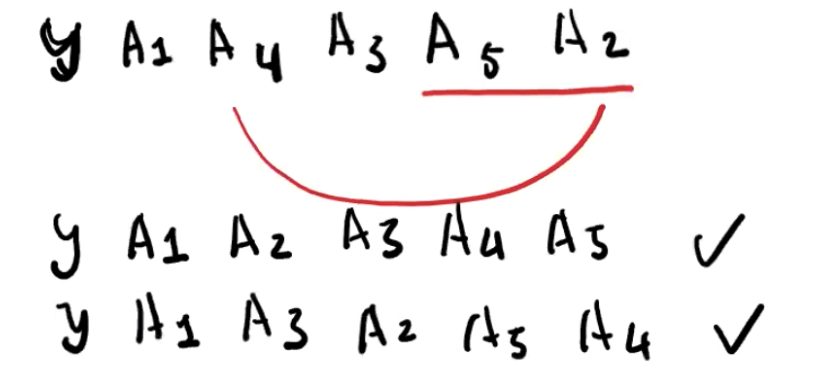 y A1 A4 A3 A5 A2
y A1 A2 A3 A4 A5 ✓
y A1 A3 A2 A5 A4 ✓